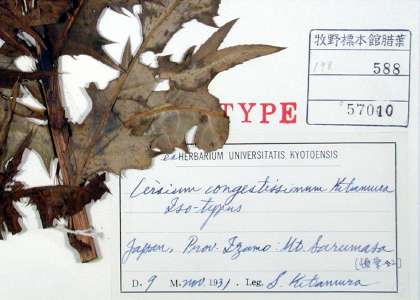 牧野標本館腊葉
198
588
57010
TYPE
ex HERBARIUM UNIVERSITATIS KYOTOENSIS
Cirsium congestissimum Kitamura
Iso-typus
Japan, Prov. Izumo: Mt. Sarumasa
D. 9 M. Nov. 1931. Leg. S. Kitamura